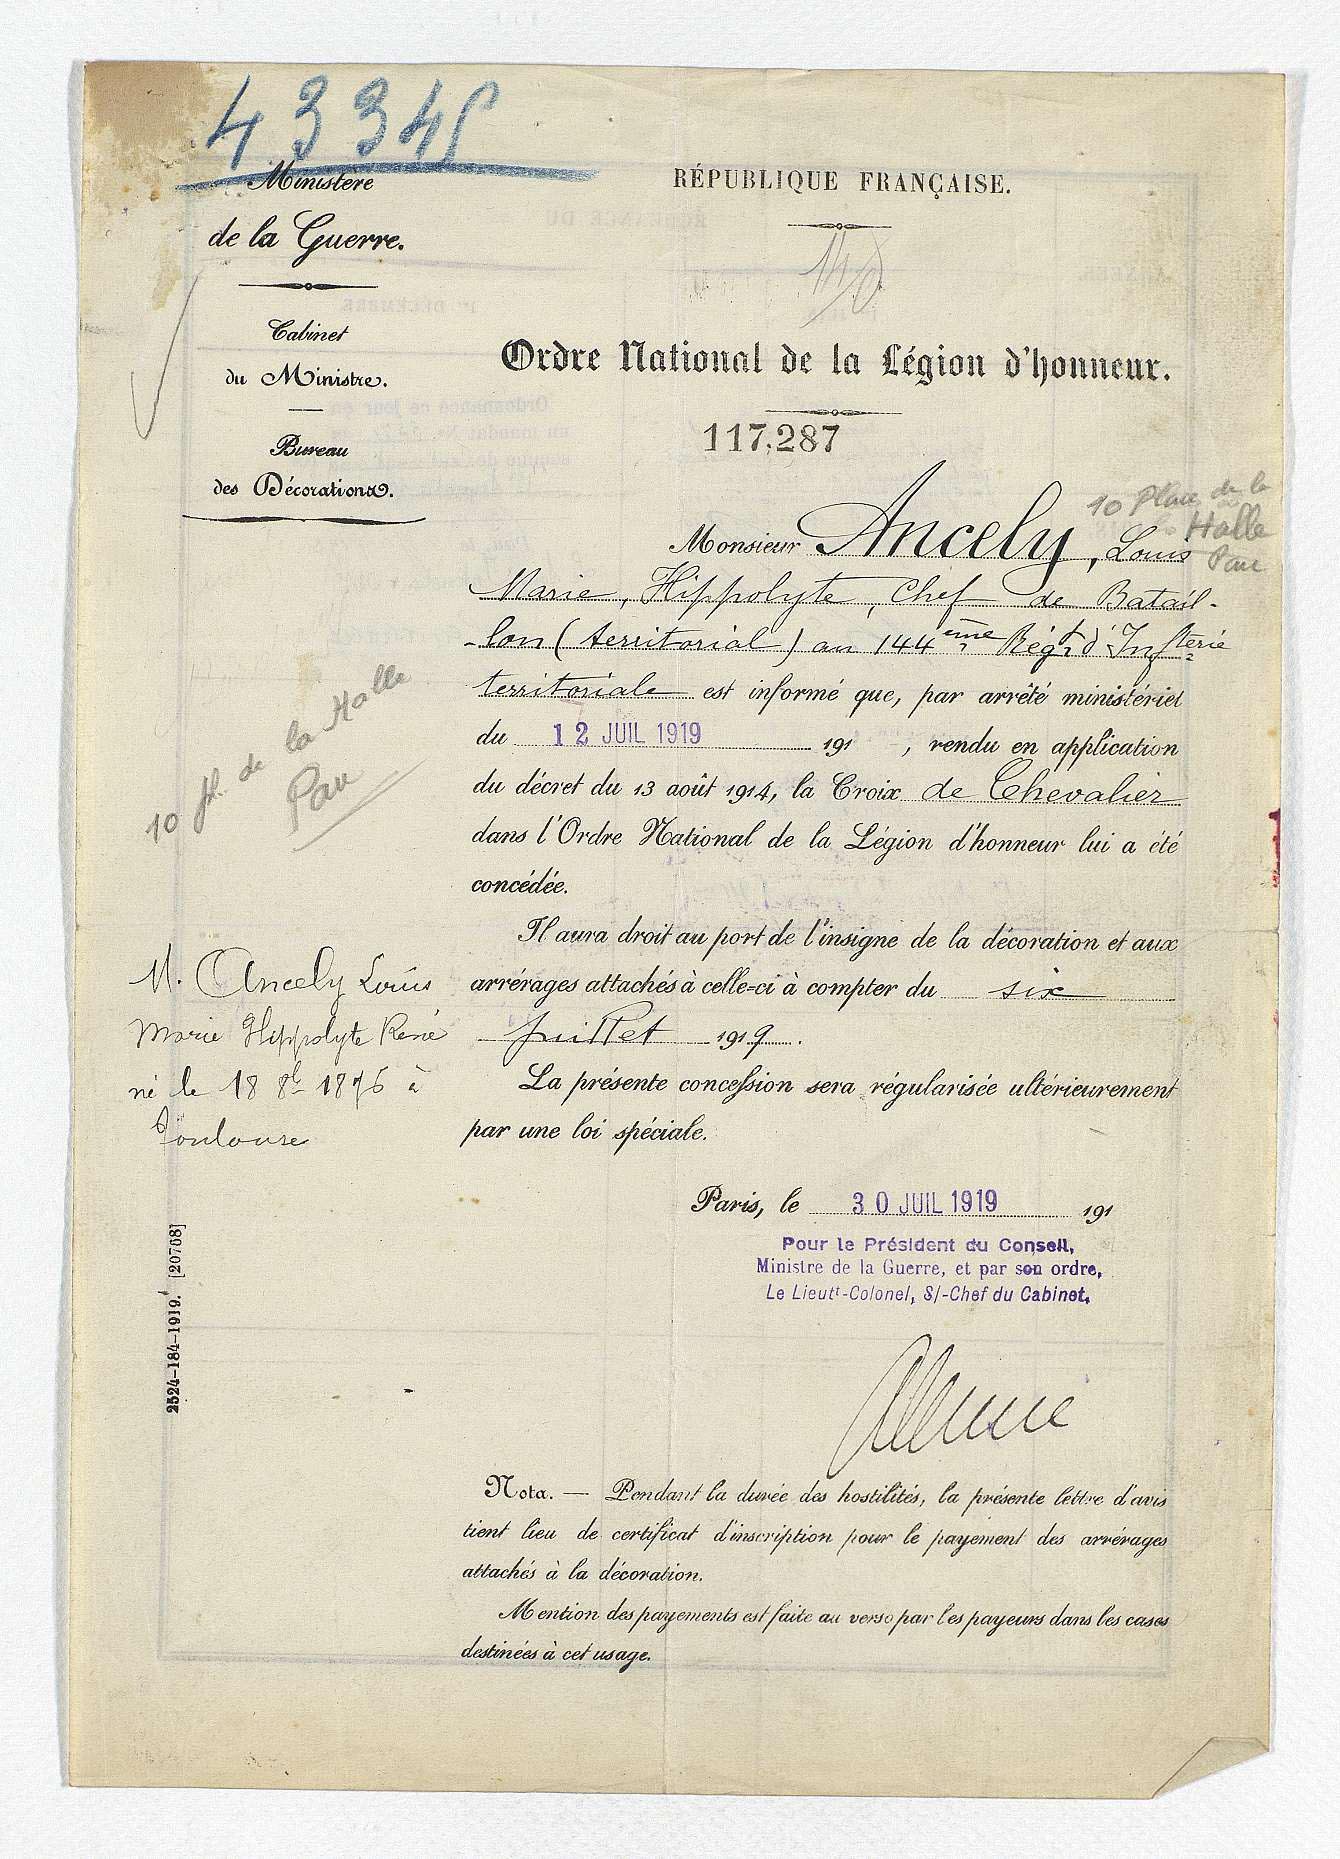 43345
Ministère
de la Guerre.
Cabinet
du Ministre.
Bureau
des Décorations.
RÉPUBLIQUE FRANÇAISE.
Ordre National de la Légion d'honneur.
117.287
10 Place de la
Halle
Pau
Monsieur Ancely, Louis
Marie, Hippolyte, Chef de Batail-
-lon (territorial) au 144ème Régt d'Infterie
territoriale est informé que, par arrêté ministériel
du 12 JUIL 1919 191 , rendu en application
du décret du 13 août 1914, la Croix de Chevalier
dans l'Ordre National de la Légion d'honneur lui a été
concédée.
Il aura droit au port de l'insigne de la décoration et aux
arrérages attachés à celle-ci à compter du six
Juillet 1919.
La présente concession sera régularisée ultérieurement
par une loi spéciale.
10 pl. de la Halle
Pau
M. Ancely Louis
Marie Hippolyte René
né le 18 8bre 1876 à
Toulouse
Paris, le 30 JUIL 1919 191
Pour le Président du Conseil,
Ministre de la Guerre, et par son ordre,
Le Lieutt-Colonel, S/-Chef du Cabinet,
2524-184-1919. [20768]
Nota. — Pendant la durée des hostilités, la présente lettre d'avis
tient lieu de certificat d'inscription pour le payement des arrérages
attachés à la décoration.
Mention des payements est faite au verso par les payeurs dans les cases
destinées à cet usage.